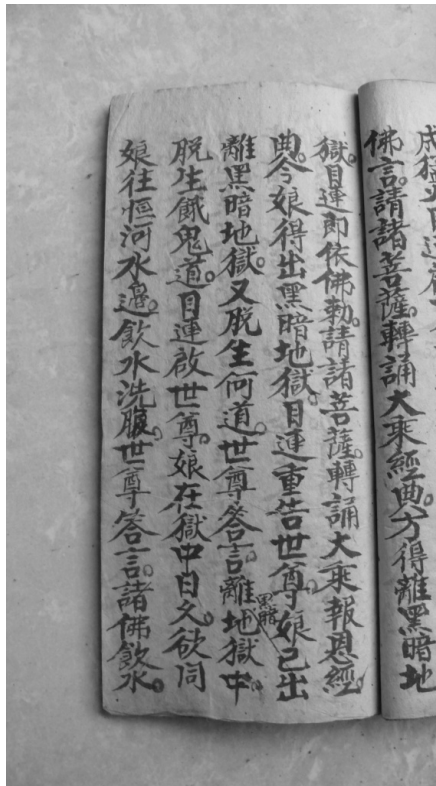 佛言。請諸菩薩。轉誦大乘經典。方得離黑暗地
獄。目連即依佛勅。請諸菩薩。轉誦大乘報恩經。
典。今娘得出黑暗地獄。目連重告世尊。娘已出
黑暗
離黑暗地獄。又脫生何道。世尊答言。離地獄中。
脫生餓鬼道。目連啟世尊。娘在獄中日久。欲同
娘往恒河水邊。飲水洗腹。世尊答言。諸佛飲水。